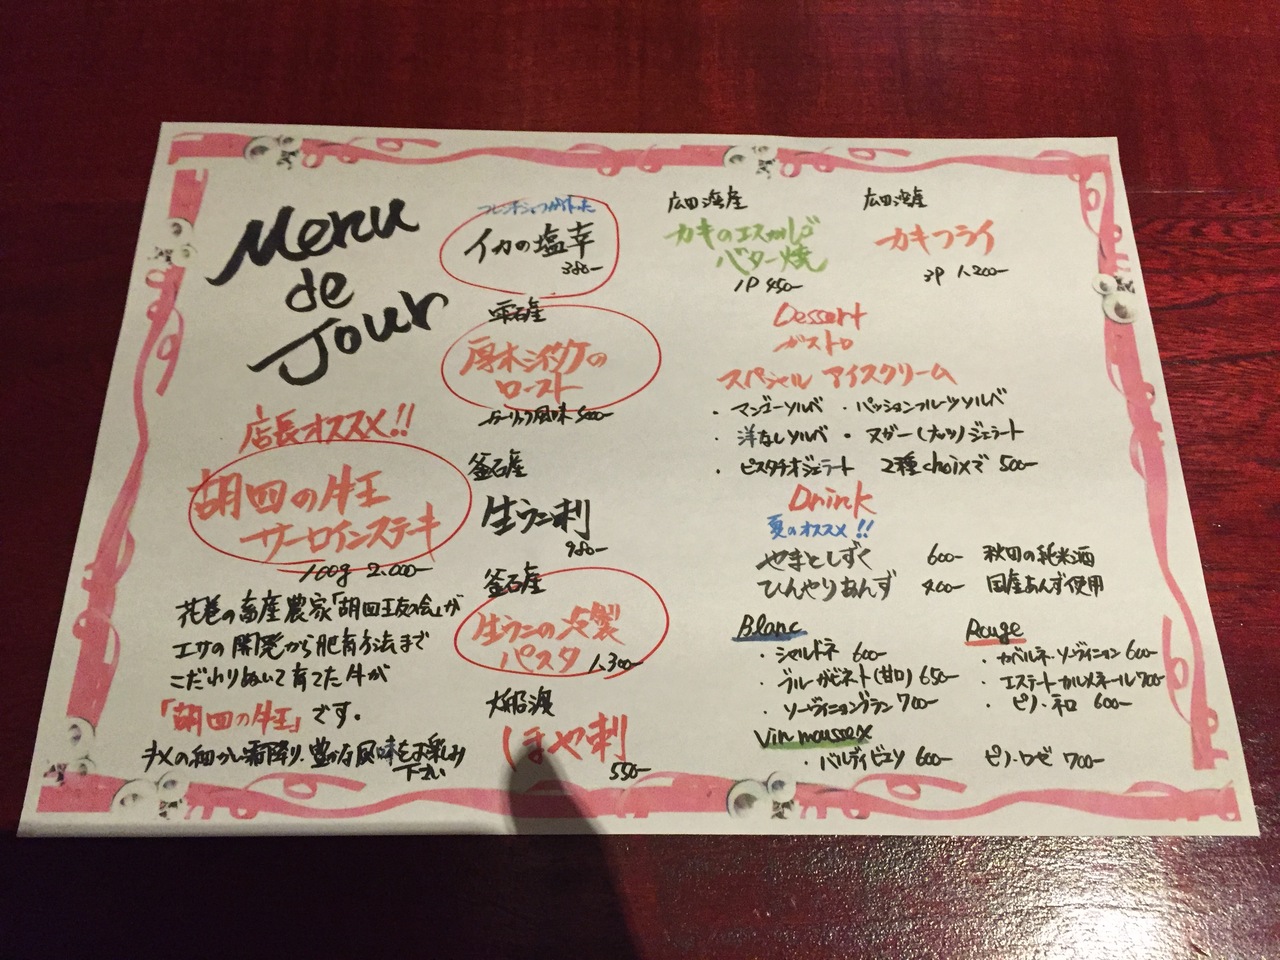 Menu
de
Jour
店長オススメ!!
胡四の牛王
サーロインステーキ
100g 2,000-
花巻の畜産農家「胡四王友の会」が
エサの開発から肥育方法まで
こだわりぬいて育てた牛が
「胡四の牛王」です。
キメの細かい霜降り、豊かな風味をお楽しみ
下さい
フレンチシェフが作った
イカの塩辛
380-
雫石産
厚木シイタケの
ロースト
ガーリック風味 500-
釜石産
生ウニ刺
980-
釜石産
生ウニの冷製
パスタ 1,300-
大船渡
ほや刺
550-
広田湾産
カキのエスカルゴ
バター焼
1P 450-
広田湾産
カキフライ
3P 1,200-
Dessert
ガストロ
スペシャル アイスクリーム
・マンゴーソルベ ・パッションフルーツソルベ
・洋なしソルベ ・ヌガー(ナッツ)ジェラート
・ピスタチオジェラート 2種choixで 500-
Drink
夏のオススメ!!
やまとしずく 600- 秋田の純米酒
ひんやりあんず 400- 国産あんず使用
Blanc
・シャルドネ 600-
・ブルーガビネット(甘口) 650-
・ソーヴィニョンブラン 700-
Rouge
・カベルネ・ソーヴィニョン 600-
・エステート カルメネール 700-
・ピノ・ネロ 600-
Vin mousseux
・バルディビエソ 600- ピノ・ロゼ 700-